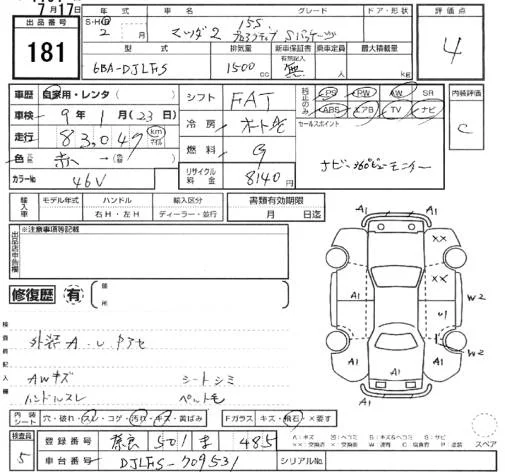 7月17日
出品番号
181
年式 車名 グレード ドア・形状 評価点
S・H・R
2 月 マツダ2 15S
プロアクティブ Sパッケージ
4
型式 排気量 新車保証書 乗車定員 最大積載量
有無記入
6BA-DJLFS 1500 cc 無 kg
車歴 自家用・レンタ( )
車検 9年 1月 (23日)
走行 83,047 km マイル
色 赤 → (色替 )
カラーNo 46V
シフト FAT
冷房 オートAC
燃料 G
リサイクル料金 8140円
純正品のみ PS PW AW SR
ABS エアB TV ナビ
セールスポイント
ナビ・360ビューモニター
内装評価
C
輸入車 モデル年式 ハンドル 輸入区分
右H・左H ディーラー・並行
書類有効期限
月 日迄
出品店申告欄
※注意事項等記載
修復歴 有 ( 箇所 )
検査員記入欄
外装A.U.
AWキズ シートシミ
ハンドルスレ ペット毛
A1 A1
A1 A1 A1
A1 A1
XX XX U1
W2 W2
スペア
内装シート 穴・破れ・スレ・コゲ・汚れ・キズ・黄ばみ
Fガラス キズ・飛石・×要す
検査員 5
登録番号 501 ま 485
車台番号 DJLFS-709531
シリアルNo.